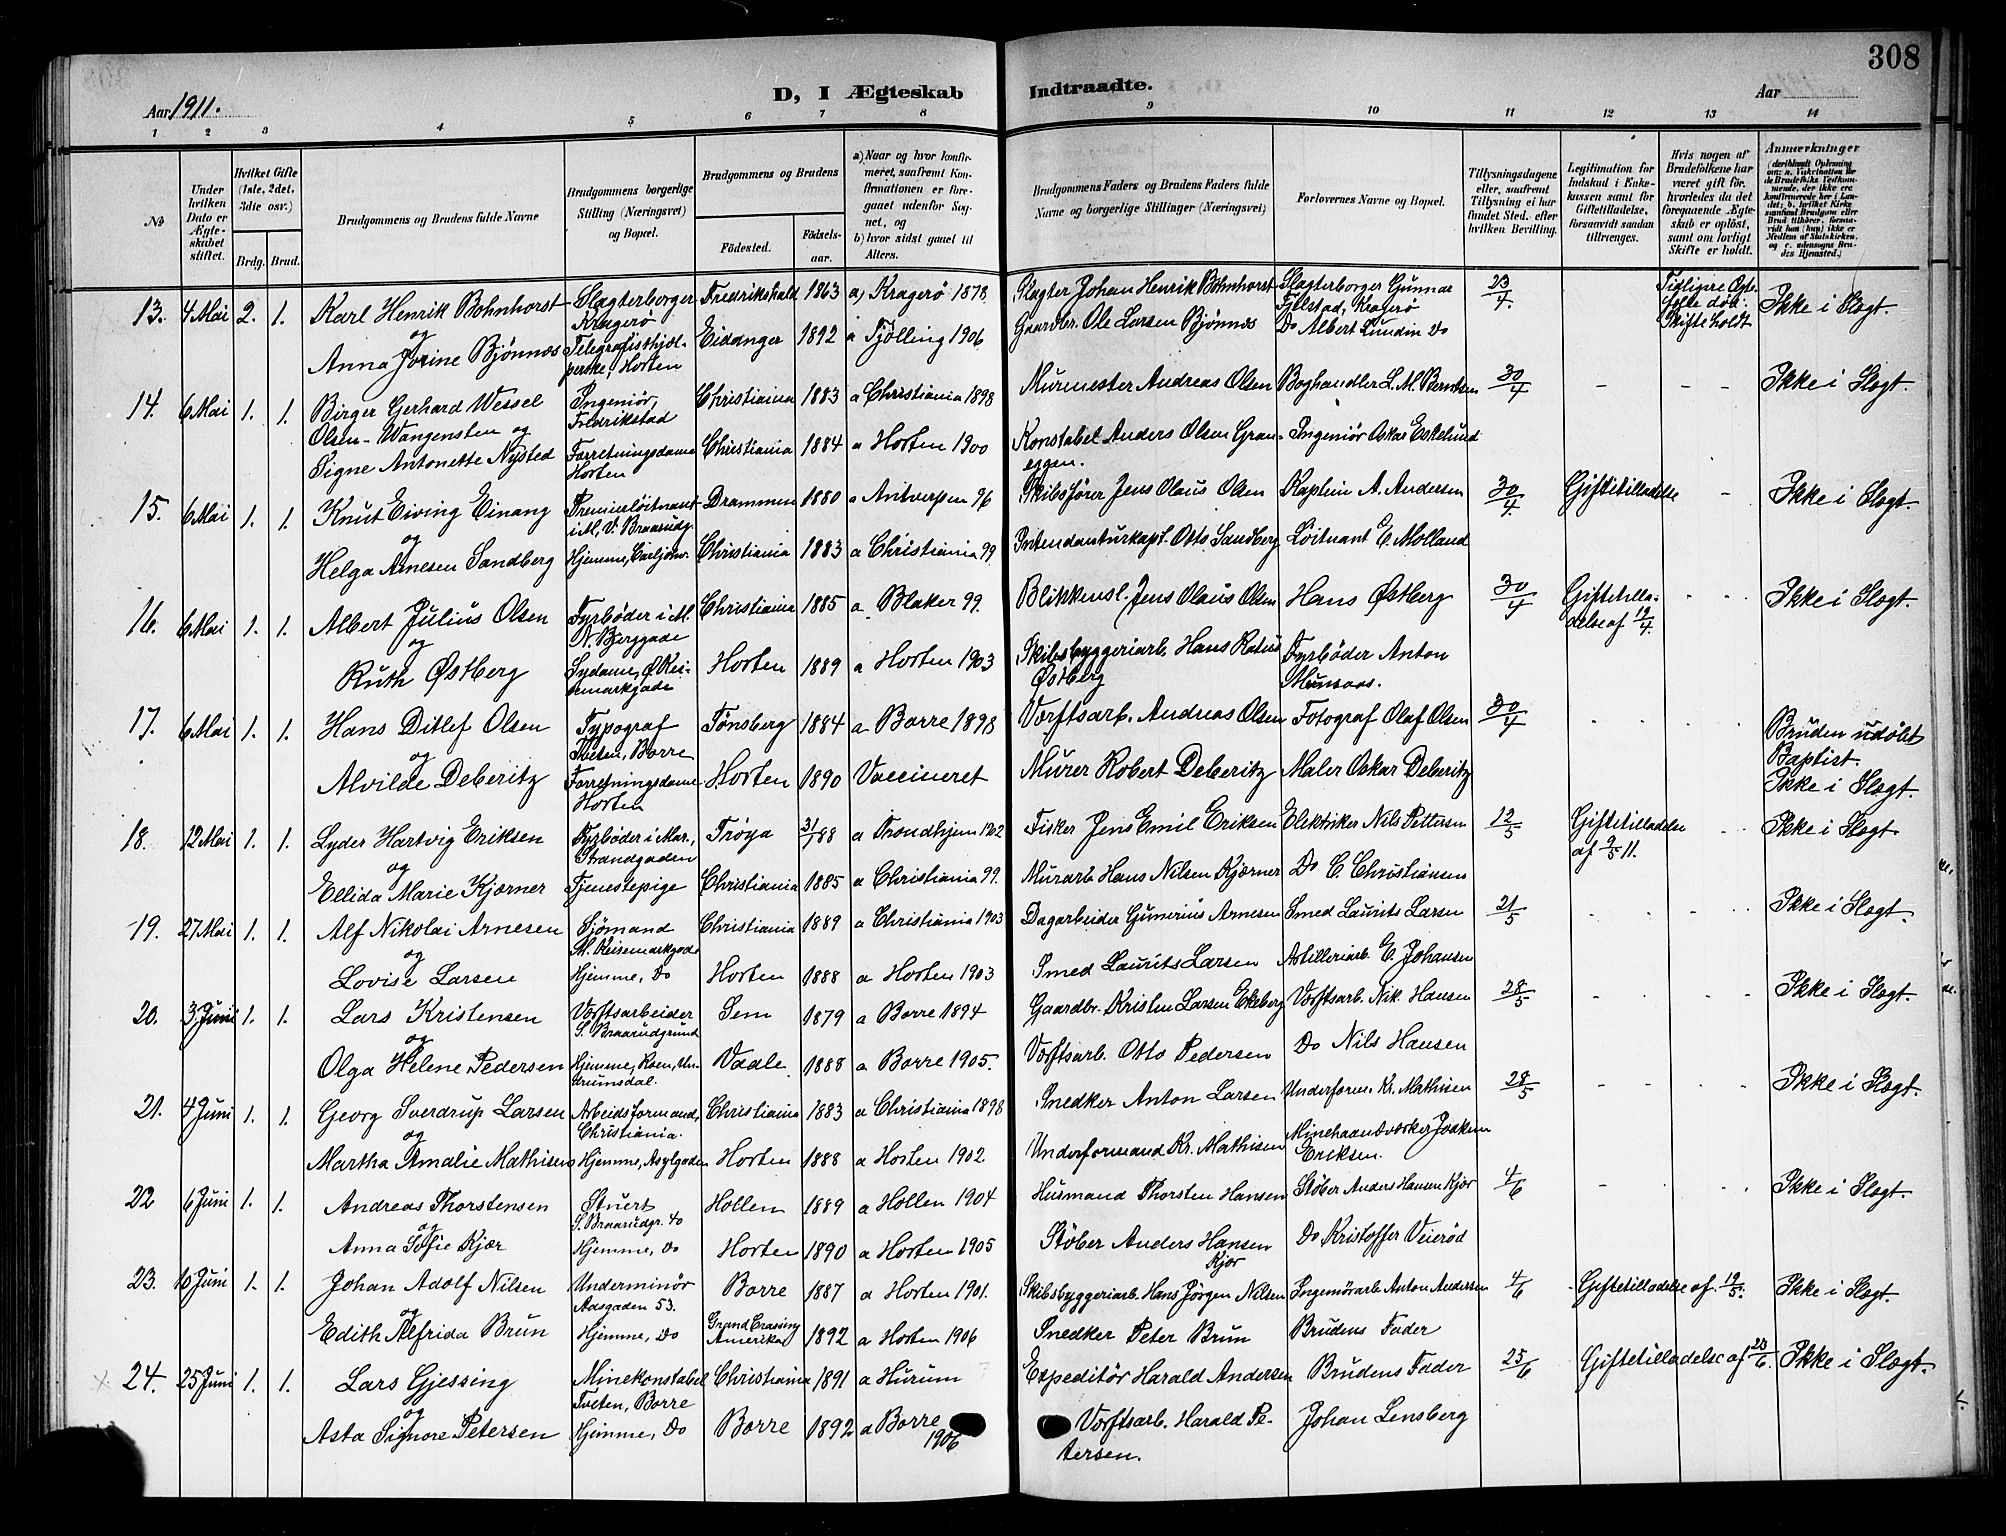 308
Aar 1911.
D, I Ægteskab Indtraadte.
Aar
1 2 3 4 5 6 7 8 9 10 11 12 13 14
No
Under hvilken Dato er Ægteskabet stiftet.
Hvilket Gifte (1ste, 2det, 3die osv.)
Brdg. Brud.
Brudgommens og Brudens fulde Navne
Brudgommens borgerlige Stilling (Næringsvei) og Bopæl.
Brudgommens og Brudens
Fødested. Fødselsaar.
a) Naar og hvor konfirmeret, saafremt Konfirmationen er foregaaet udenfor Sognet, og
b) hvor sidst gaaet til Alters.
Brudgommens Faders og Brudens Faders fulde Navne og borgerlige Stillinger (Næringsvei)
Forlovernes Navne og Bopæl.
Tillysningsdagene eller, saafremt Tillysning ei har fundet Sted, efter hvilken Bevilling.
Legitimation for Indskud i Enkekassen samt for Giftetilladelse, forsaavidt saadan tiltrænges.
Hvis nogen af Brudefolkene har været gift før, hvorledes da det foregaaende Ægteskab er opløst, samt om lovligt Skifte er holdt.
Anmærkninger
(deriblandt Oplysning om: a. Vakcination for de Brudefolks Vedkommende, der ikke ere konfirmerede her i Landet; b. hvilket Kirkesamfund Brudgom eller Brud tilhører, forsaavidt han (hun) ikke er Medlem af Statskirken, og c. udensogns Brudes Hjemsted.)
13. 4 Mai 2. 1. Karl Henrik Bohnhorst Slagterborger Kragerø Fredrikshald 1863 a) Kragerø 1878 Slagter Johan Henrik Bohnhorst Slagterborger Gunnar Fjelstad, Kragerø 23/4. Tidligere Ægtefelle død. Skifte holdt Ikke i Slægt.
og
Anna Jorine Bjønnes Telegrafisthjælperske, Horten Eidanger 1892 a Tjølling 1906 Gaardbr. Ole Larsen Bjønnes Do Albert Lundin Do
14. 6 Mai 1. 1. Birger Gerhard Wessel Olsen-Wangensten og Ingeniør, Fredrikstad Christiania 1883 a Christiania 1898 Murmester Andreas Olsen Boghandler L. M. Berntsen 30/4 - - - Ikke i Slægt.
Signe Antonette Nysted Forretningsdame Horten Christiania 1884 a Horten 1900 Konstabel Anders Olsen Graneggen. Ingeniør Oskar Eskelund
15. 6 Mai 1. 1. Knut Eiving Einang Premierløitnant i M, V. Braarudg. Drammen 1880 a Antverpen 96 Skibsfører Jens Olaus Olsen Kaptein A. Andersen 30/4. Giftetilladelse - Ikke i Slægt.
og
Helga Arnesen Sandberg Hjemme, Carljohv. Christiania 1883 a Christiania 99 Intendanturkapt. Otto Sandberg Løitnant E. Molland
16. 6 Mai 1. 1. Albert Julius Olsen Fyrbøder i M. N. Berggade Christiania 1885 a Blaker 99. Blikkensl. Jens Olaus Olsen Hans Østberg 30/4 Giftetilladelse af 19/4. - - Ikke i Slægt.
og
Ruth Østberg Sydame, Ø. Keisemarkgade Horten 1889 a Horten 1903 Skibsbyggeriarb. Hans Ratus Østberg Fyrbøder Anton
17. 6 Mai 1. 1. Hans Ditlef Olsen Typograf Tveten, Borre Tønsberg 1884 a Borre 1898 Værftsarb. Andreas Olsen Fotograf Olaf Olsen 30/4 Bruden udøbt Baptist.
og
Alvilde Deberitz Forretningsdame Horten Horten 1890 Vaccineret Murer Robert Deberitz Maler Oskar Deberitz Ikke i Slægt.
18. 12 Mai 1. 1. Lyder Hartvig Eriksen Fyrbøder i Mar., Strandgaden Trøya 31/1 88 a Trondhjem 1902 Fisker Jens Emil Eriksen Elektriker Nils Pettersen 12/5 Giftetilladelse af 9/5 11. Ikke i Slægt.
og
Ellida Marie Kjærner Tjenestepige Christiania 1885 a Christiania 99. Murarb Hans Nilsen Kjærner Do C. Christiansen
19. 27 Mai 1. 1. Alf Nikolai Arnesen Sjømand M. Keisemarkgade Christiania 1889 a Christiania 1903 Dagarbeider Gunerius Arnesen Smed Laurits Larsen 21/5 Ikke i Slægt.
og
Lovise Larsen Hjemme, Do Horten 1888 a Horten 1903 Smed Laurits Larsen Artilleriarb. E. Johansen
20. 3 Juni 1. 1. Lars Kristensen Værftsarbeider S. Braarudgrund Sem 1879 a Borre 1894 Gaardbr. Kristen Larsen Ekeberg Værftsarb. Nik. Hansen 28/5 Ikke i Slægt.
og
Olga Helene Pedersen Hjemme, Roen, Undrumsdal. Vaale 1888 a Borre 1905. Værftsarb. Otto Pedersen Do Nils Hansen
21. 4 Juni 1. 1. Georg Sverdrup Larsen Arbeidsformand, Christiania. Christiania 1883 a Christiania 1898 Snedker Anton Larsen Underform. Kr. Mathisen 28/5 - - - Ikke i Slægt.
og
Martha Amalie Mathisen Hjemme, Asylgaden Horten 1888 a Horten 1902 Underformand Kr. Mathisen Minehaandværker Joakim Eriksen.
22 6 Juni 1. 1. Andreas Thorstensen Stuert S. Braarudgr. 40 Hollen 1889 a Hollen 1904 Husmand Thorsten Hansen Støber Anders Hansen Kjær 4/6 - Ikke i Slægt.
og
Anna Sofie Kjær Hjemme, Do Horten 1890 a Horten 1905 Støber Anders Hansen Kjær Do Kristoffer Veierød
23. 10 Juni 1. 1. Johan Adolf Nilsen Underminør Aasgaden 53. Borre 1887 a Horten 1901. Skibsbyggeriarb. Hans Jørgen Nilsen Ingeniørarb Anton Andersen 4/6 Giftetilladelse af 19/5. Ikke i Slægt.
og
Edith Alfrida Brun Hjemme, Do Grand Crassing Amerika 1892 a Horten 1906 Snedker Peter Brun Brudens Fader
24. 25 Juni 1. 1. Lars Gjessing Minekonstabel Tveten, Borre Christiania 1891 a Hurum Expeditør Harald Andersen Brudens Fader 25/6 Giftetilladelse af 20/6. Ikke i Slægt.
og
Asta Signore Petersen Hjemme, Do Borre 1892 a Borre 1906 Værftsarb. Harald Petersen. Johan Lensberg